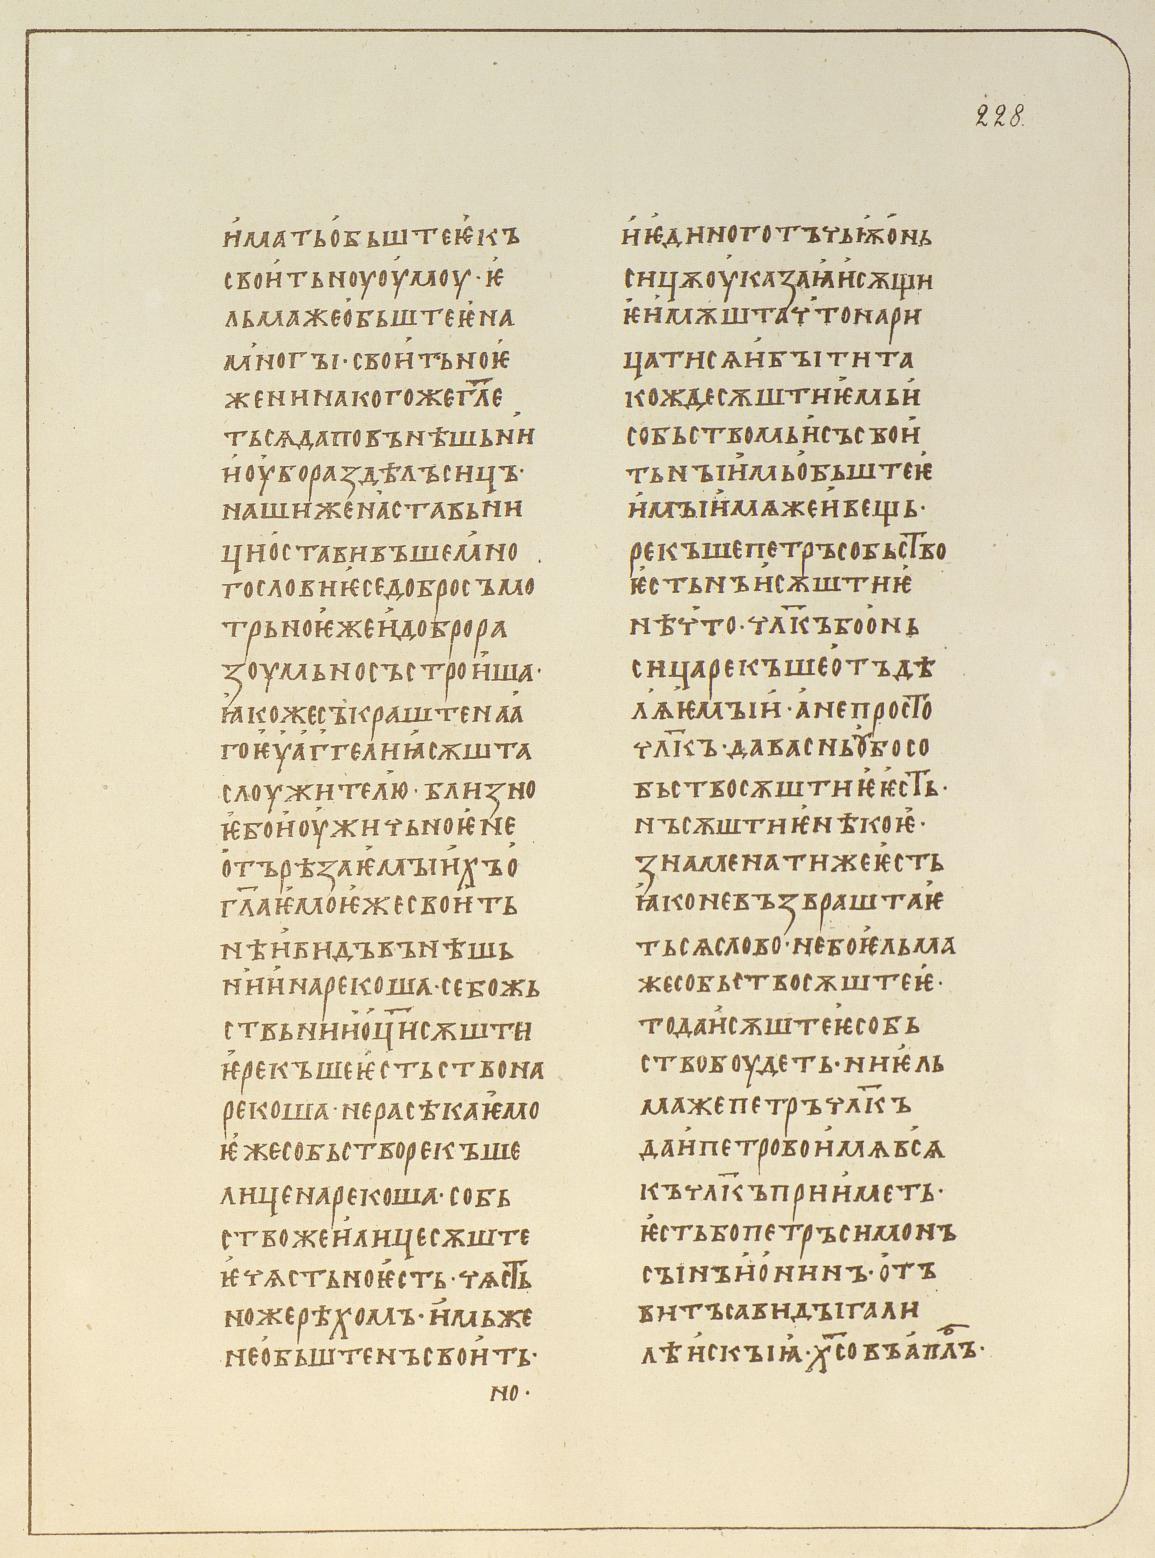 228.
иматьобьштеѥкъ
своитьноуоумоу·ѥ
льмажеобьштеѥна
многꙑ·своитьноѥ
женинакогожегл҃е
тьсѧдаповънѣшьни
ноубораздѣлъсицъ·
нашижена́ставьни
циоставивъшемно
гословиѥседобросъмо
трьноѥжеидоброра
зоумьносъстроиша·
ꙗкожесъкраштенаа
гоѥуаггелиꙗсѫшта
слоужителю·близно
ѥбоиоужичьноѥне
отърѣзаѥмꙑихъо
гл҃аѥмоѥжесвоить
нѣивидъвънѣшь
ниинарекоша·себожь
ствьниио҃цисѫшти
ѥрекъшеѥстьствона
рекоша·нерасѣкаѥмо
ѥжесобьстворекъше
лиценарекоша·собь
ствожеилицесѫште
ѥчѧстьноѥсть·чѧст҃ь
ножерѣхомъ·имьже
необьштенъсвоить·
но·
иѥдиноготъчьѭонь
сицѫоуказаꙗисѫщи
ѥимѫштаꙗтонари
цатисѧибꙑтита
кождесѫштиѥмьи
собьствомьисъсвои
тьнꙑимьобьштеѥ
имꙑимѧжеивещь·
рекъшепетръсобьст҃во
ѥстьнъисѫштиѥ
нѣчто·чл҃къбоонь
сицарекъшеотъдѣ
лѧѥмꙑи·анепрост҃о
чл҃къ·давасиьꙋбосо
бьствосѫштиѥѥст҃ь·
нъсѫштиѥнѣкоѥ·
знаменатижеѥсть
ꙗконевъзвраштаѥ
тьсѧслово·небоѥльма
жесобьствосѫштеѥ·
тодаисѫштеѥсобь
ствобоудеть·ниѥль
мажепетръчл҃къ
даипетровоимѧвсѧ
къчл҃къприиметь·
ѥстьбопетръсимонъ
сꙑнъионинъ·отъ
витъсавидꙑгали
лѣискꙑꙗ·х҃совъапл҃ъ·